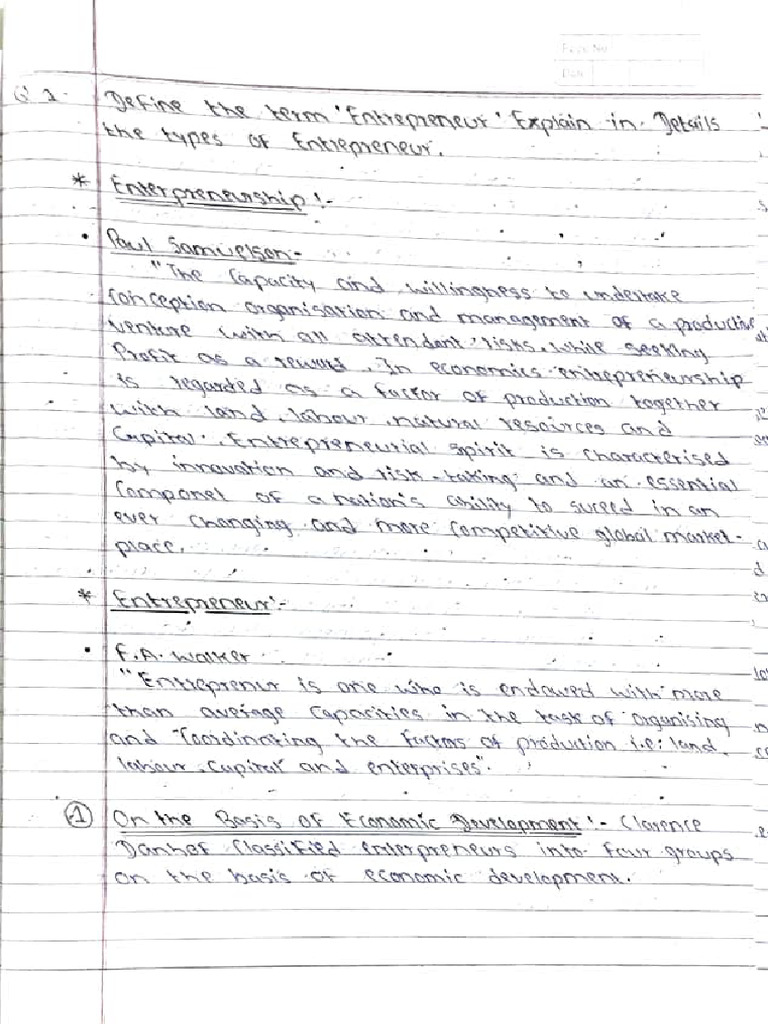 Page No
Date
Q.1 Define the term 'Entrepreneur' Explain in Details
the types of Entrepreneur.
* Enterpreneurship :-
• Paul Samuelson-
"The Capacity and willingness to undertake
conception organisation and management of a productive
venture with all attendant risks, while seeking
Profit as a reward. In economics entrepreneurship
is regarded as a factor of production together
with land, labour, natural resources and
Capital. Entrepreneurial spirit is characterised
by innovation and risk-taking and an essential
Componet of a nation's ability to suceed in an
ever changing and more Competitive global market-
place.
* Entrepreneur :-
• F.A. Walker
"Entreprenur is one who is endowed with more
than average Capacities in the task of organising
and Coordinating the factors of production i.e: land,
labour, Capital and enterprises".
1 On the Basis of Economic Development :- Clarence
Danhof Classified enterpreneurs into four groups
on the basis of economic development.